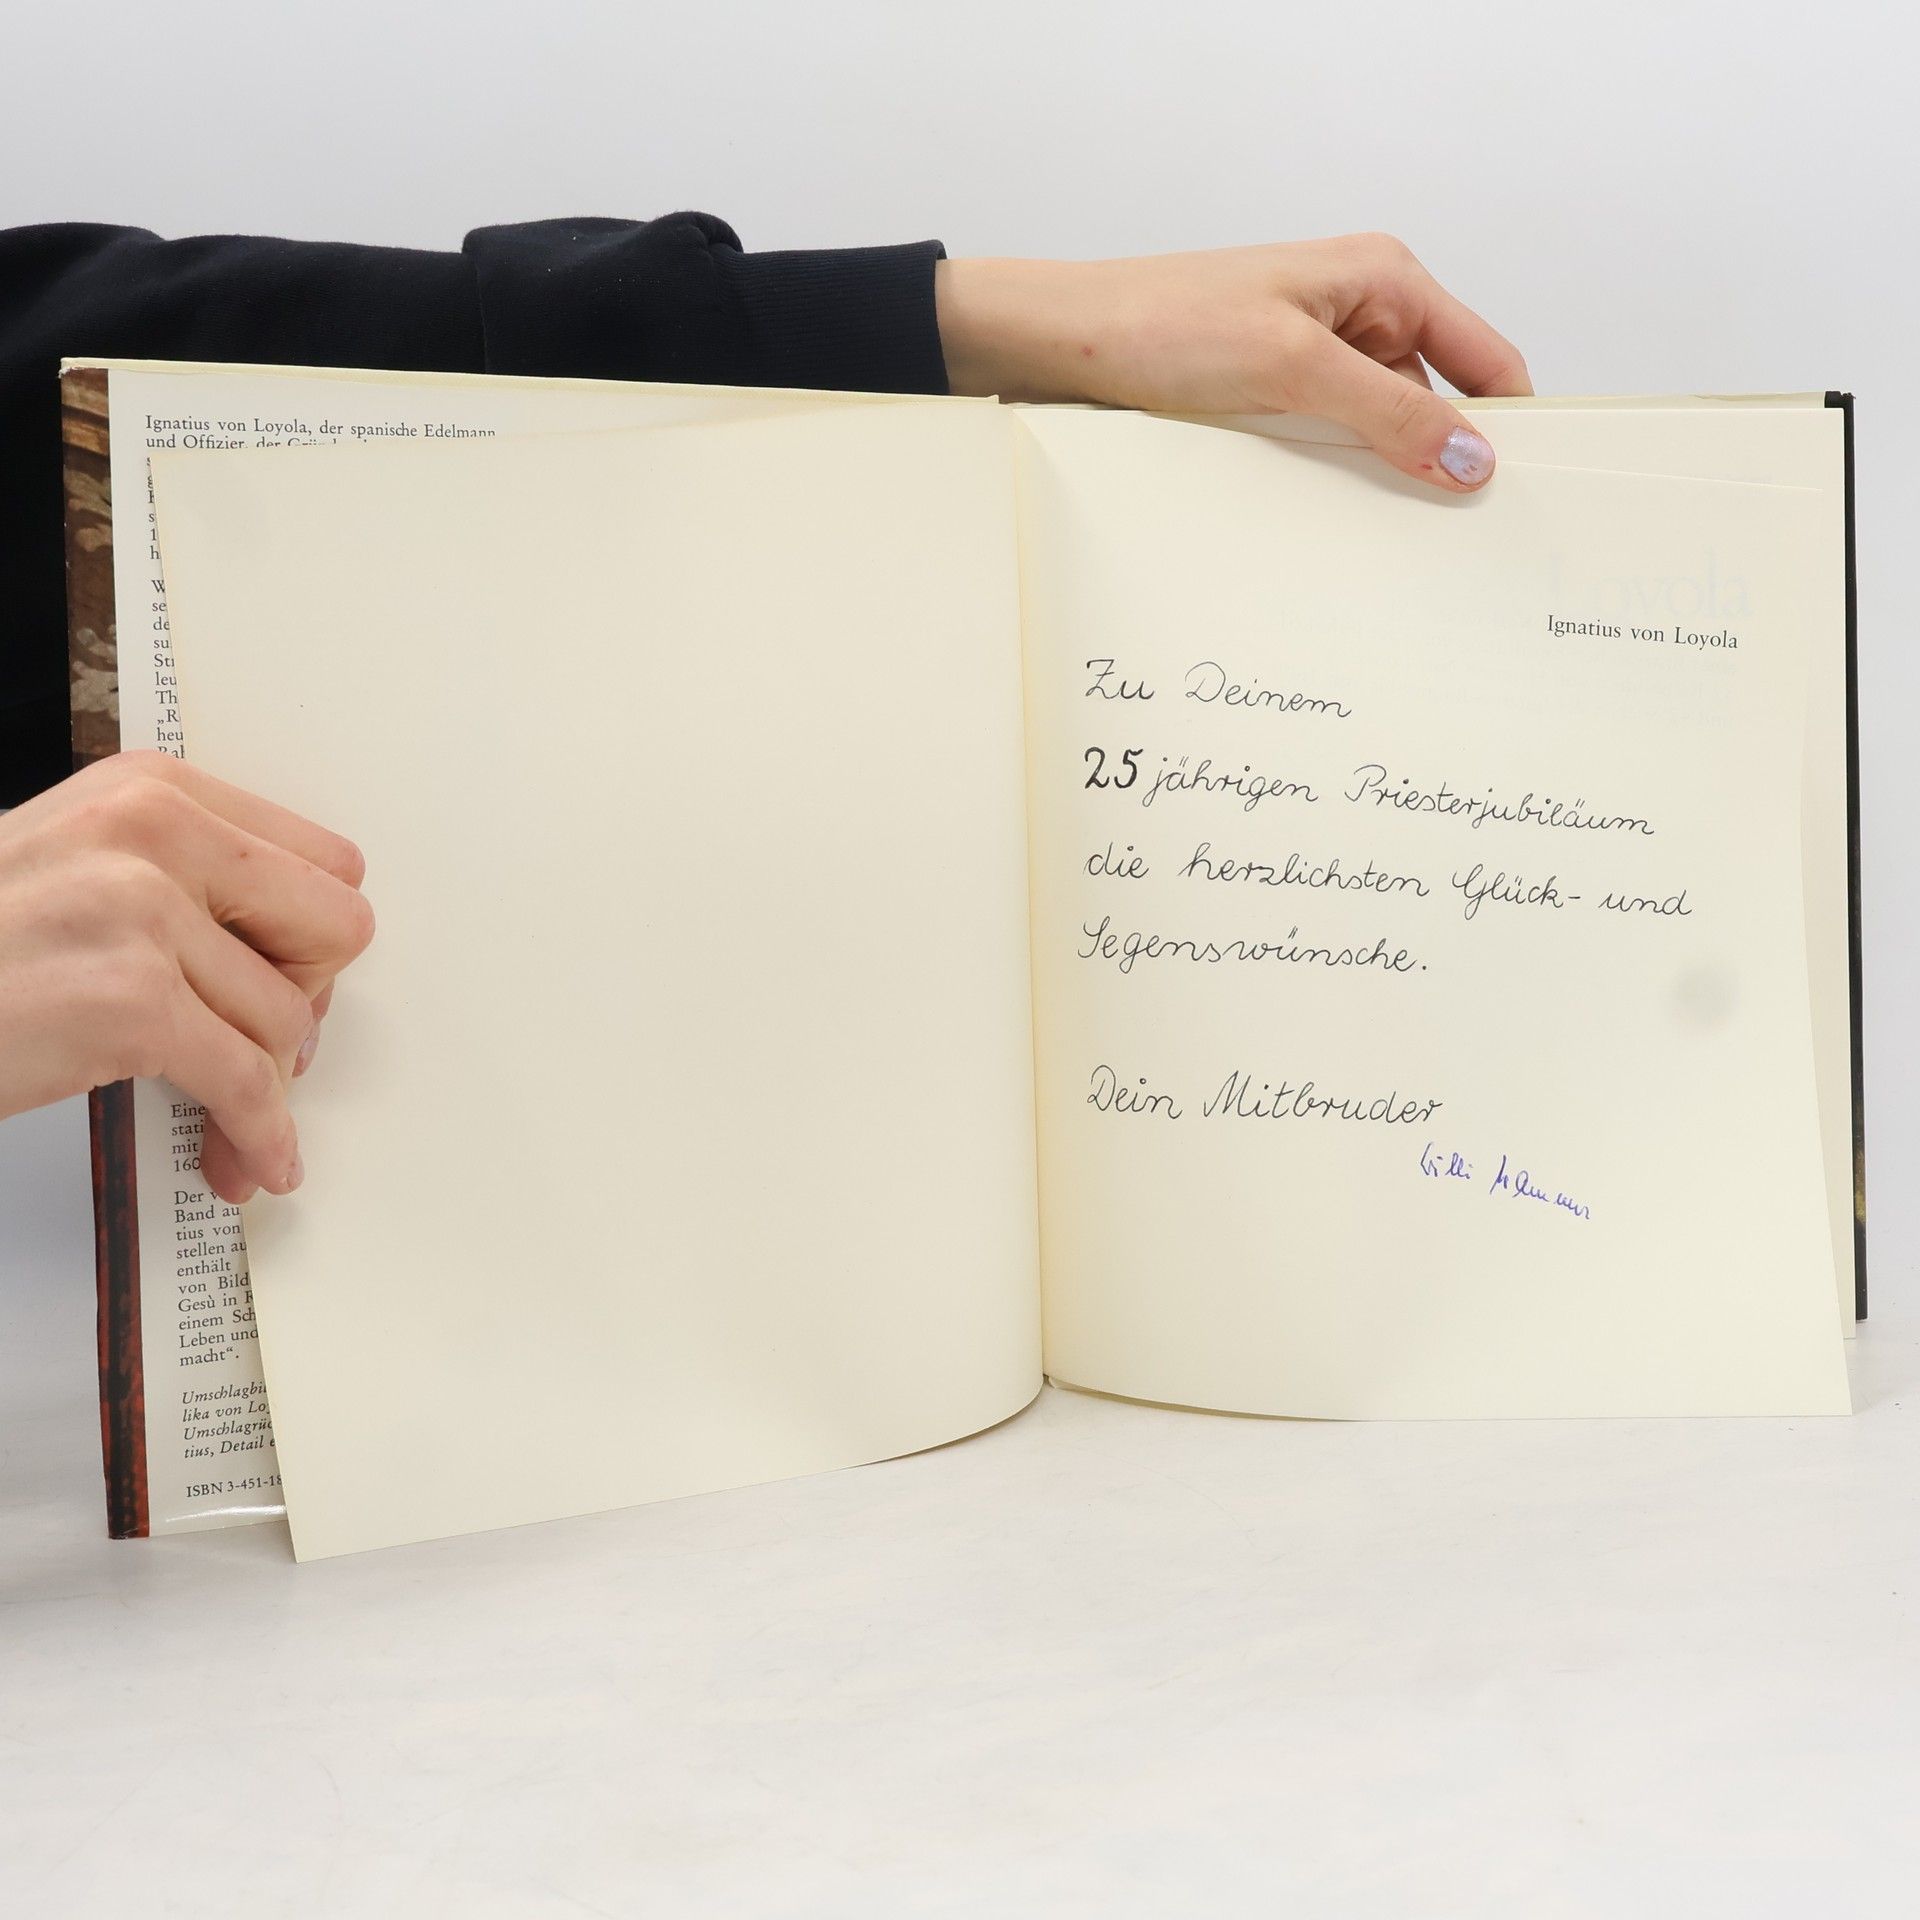 Ignatius von Loyola, der spanische Edelmann
und Offizier, der
heu
Eine
mit
160
Der
Band au
tius von
stellen au
enthält
von Bild
Gesù in
einem Sch
Leben und
macht“.
Umschlagbil
lika von Lo
Umschlagrüc
tius, Detail
ISBN 3-451-18
Loyola
Ignatius von Loyola
Zu Deinem
25 jährigen Priesterjubiläum
die herzlichsten Glück- und
Segenswünsche.
Dein Mitbruder
Willi